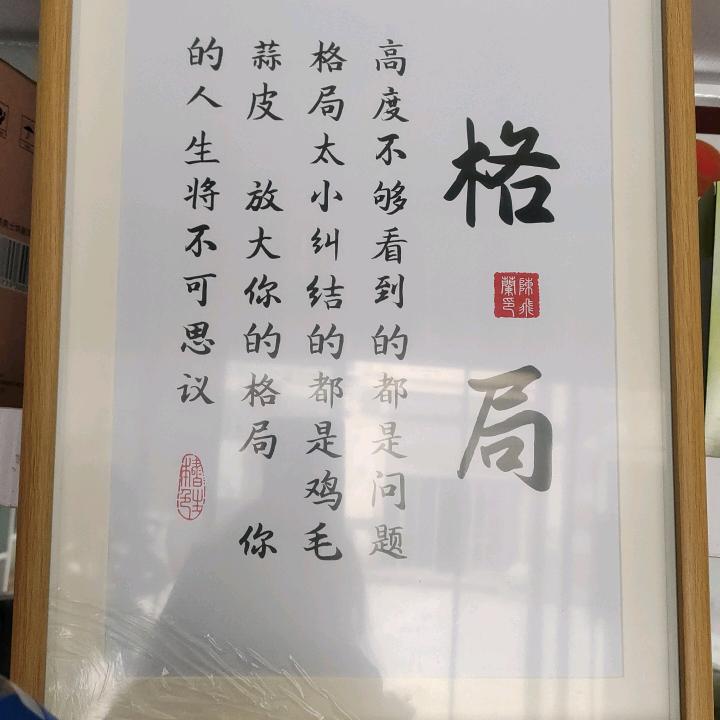 格局
陳飛蘭印
高度不够看到的都是问题
格局太小纠结的都是鸡毛
蒜皮 放大你的格局 你
的人生将不可思议